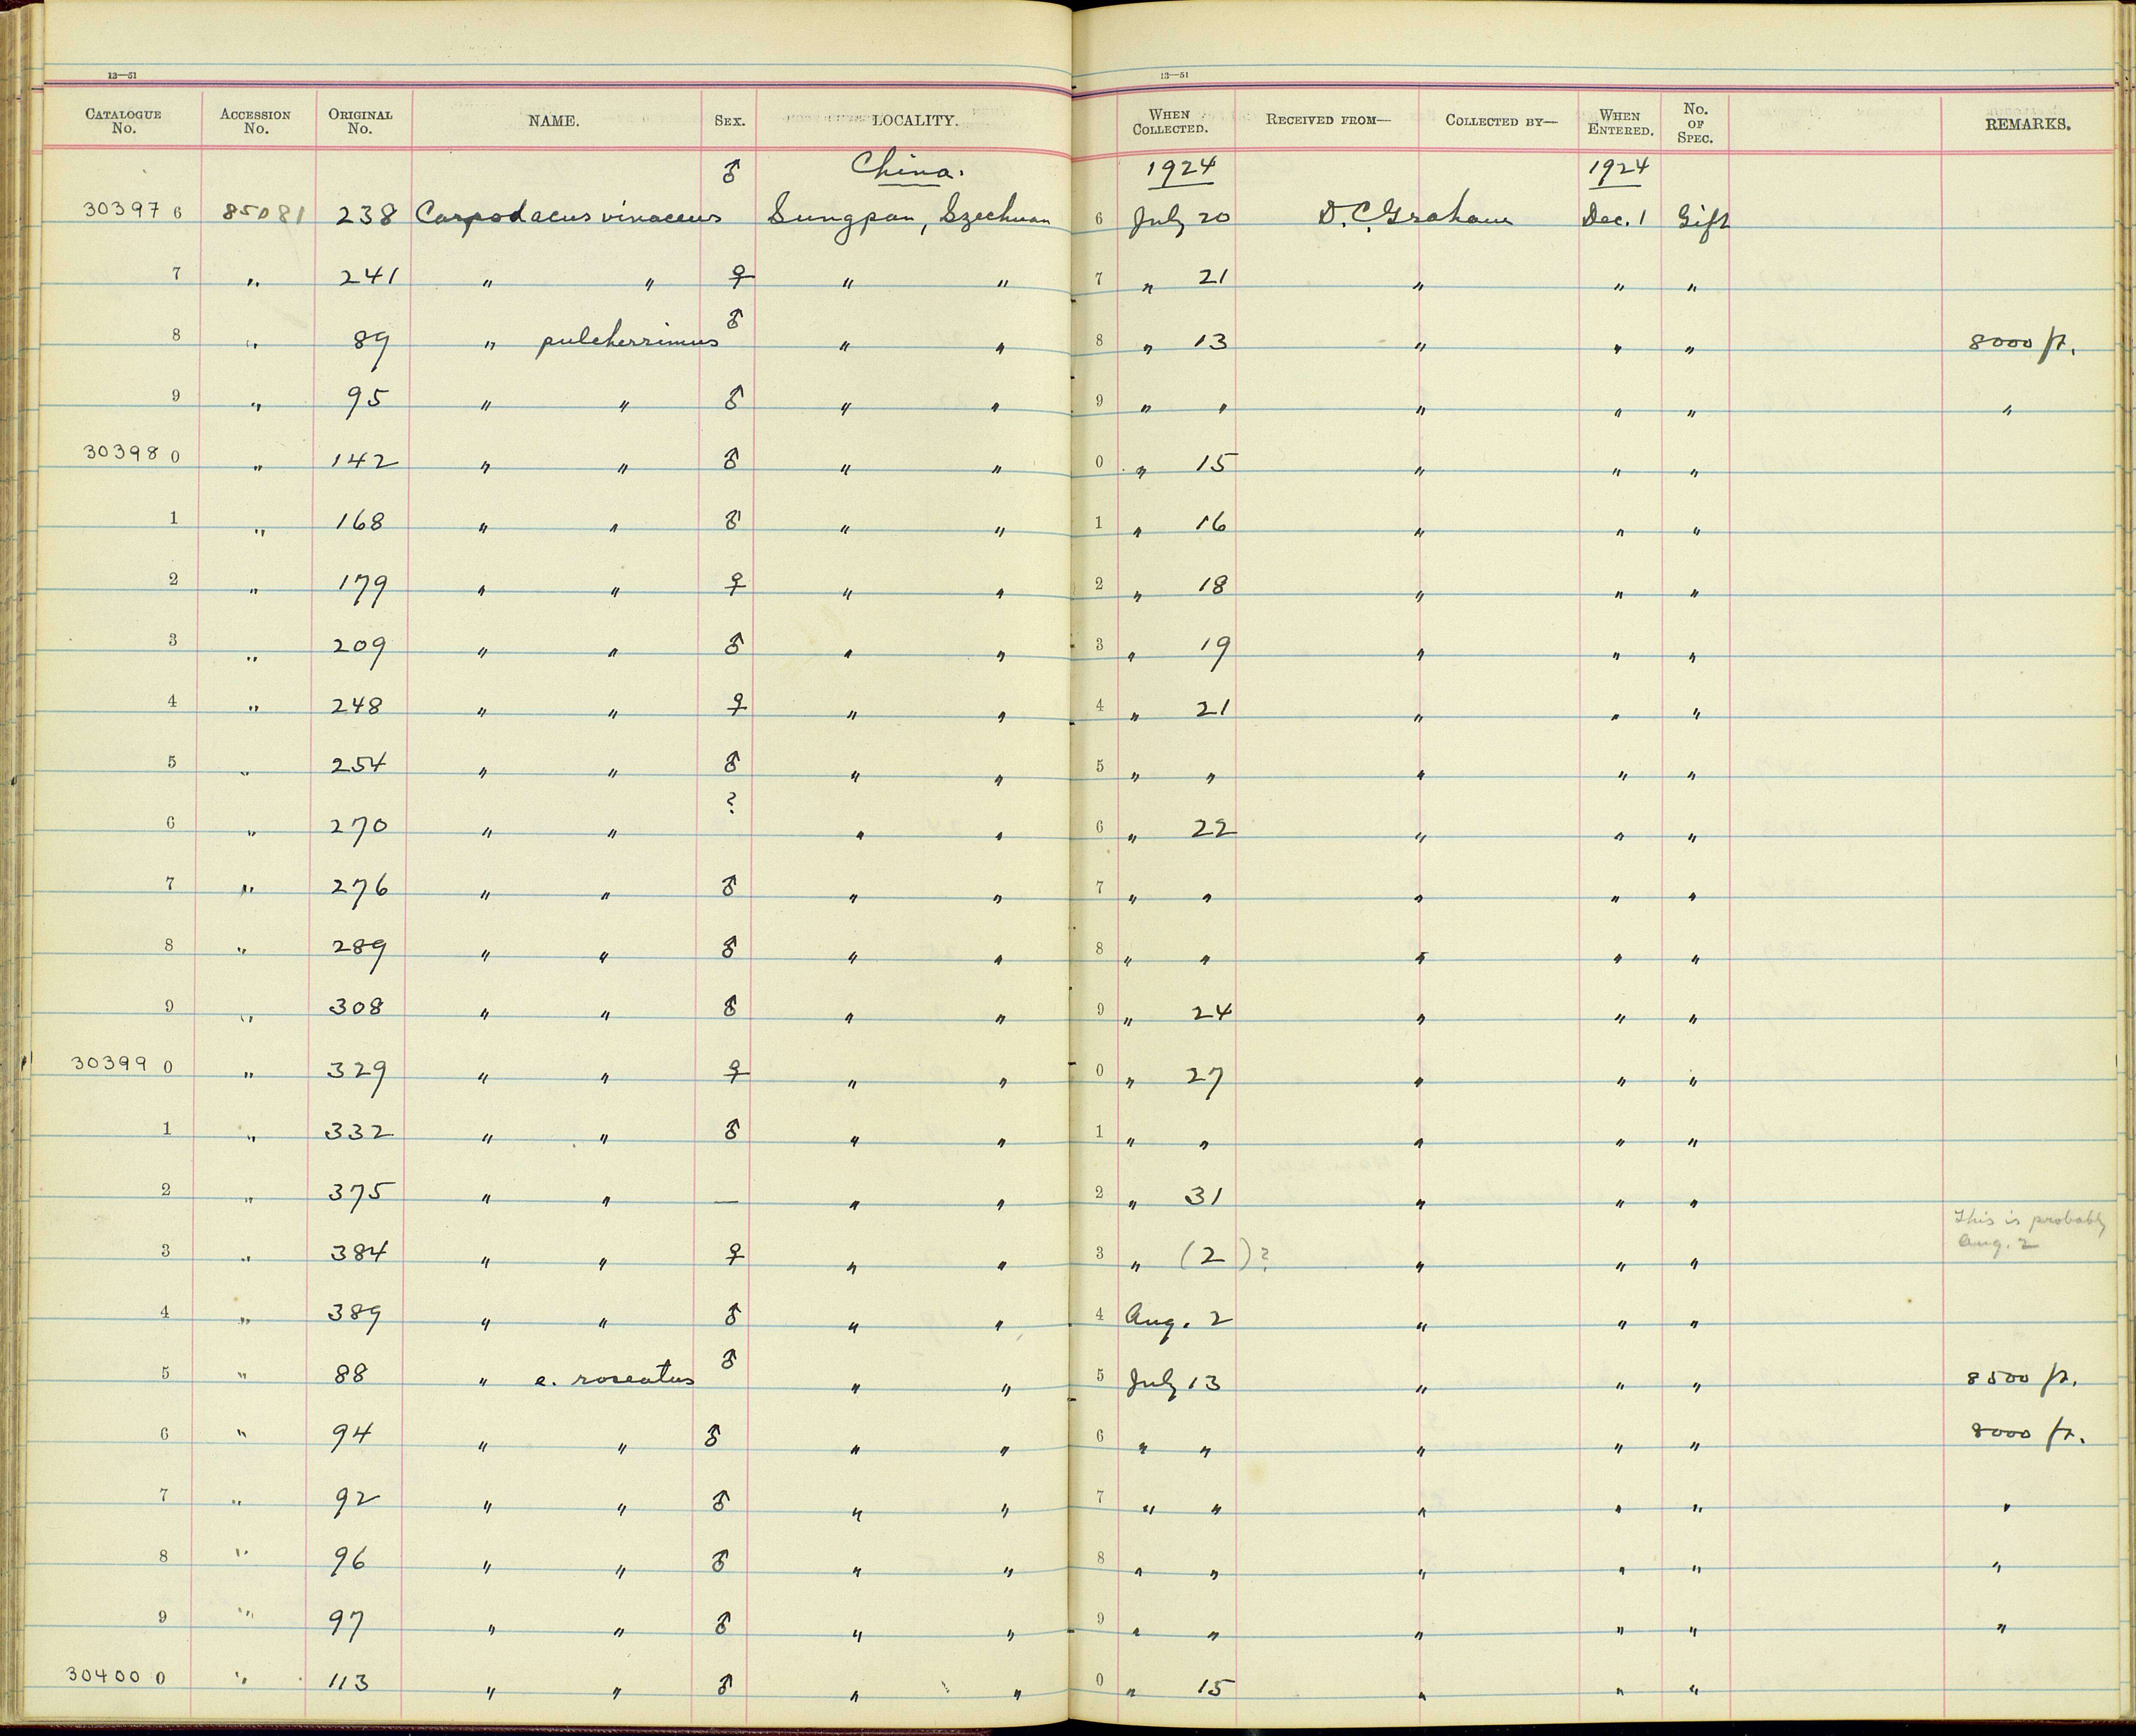 13—51 13—51
CATALOGUE No. ACCESSION No. ORIGINAL No. NAME. SEX. LOCALITY. WHEN COLLECTED. RECEIVED FROM— COLLECTED BY— WHEN ENTERED. No. OF SPEC. REMARKS.
♂ China. 1924 1924
303976 85081 238 Carpodacus vinaceus Sungpan, Szechuan 6 July 20 D. C. Graham Dec. 1 Gift
7 " 241 " " ♀ " " 7 " 21 " " "
8 " 89 " pulcherrimus ♂ " " 8 " 13 " " " 8000 ft.
9 " 95 " " ♂ " " 9 " " " " " "
303980 " 142 " " ♂ " " 0 " 15 " " "
1 " 168 " " ♂ " " 1 " 16 " " "
2 " 179 " " ♀ " " 2 " 18 " " "
3 " 209 " " ♂ " " 3 " 19 " " "
4 " 248 " " ♀ " " 4 " 21 " " "
5 " 254 " " ♂ " " 5 " " " " "
6 " 270 " " ? " " 6 " 22 " " "
7 " 276 " " ♂ " " 7 " " " " "
8 " 289 " " ♂ " " 8 " " " " "
9 " 308 " " ♂ " " 9 " 24 " " "
303990 " 329 " " ♀ " " 0 " 27 " " "
1 " 332 " " ♂ " " 1 " " " " "
2 " 375 " " — " " 2 " 31 " " "
3 " 384 " " ♀ " " 3 " (2)? " " " This is probably Aug. 2
4 " 389 " " ♂ " " 4 Aug. 2 " " "
5 " 88 " e. roseatus ♂ " " 5 July 13 " " " 8500 ft.
6 " 94 " " ♂ " " 6 " " " " " 8000 ft.
7 " 92 " " ♂ " " 7 " " " " " "
8 " 96 " " ♂ " " 8 " " " " " "
9 " 97 " " ♂ " " 9 " " " " " "
304000 " 113 " " ♂ " " 0 " 15 " " "